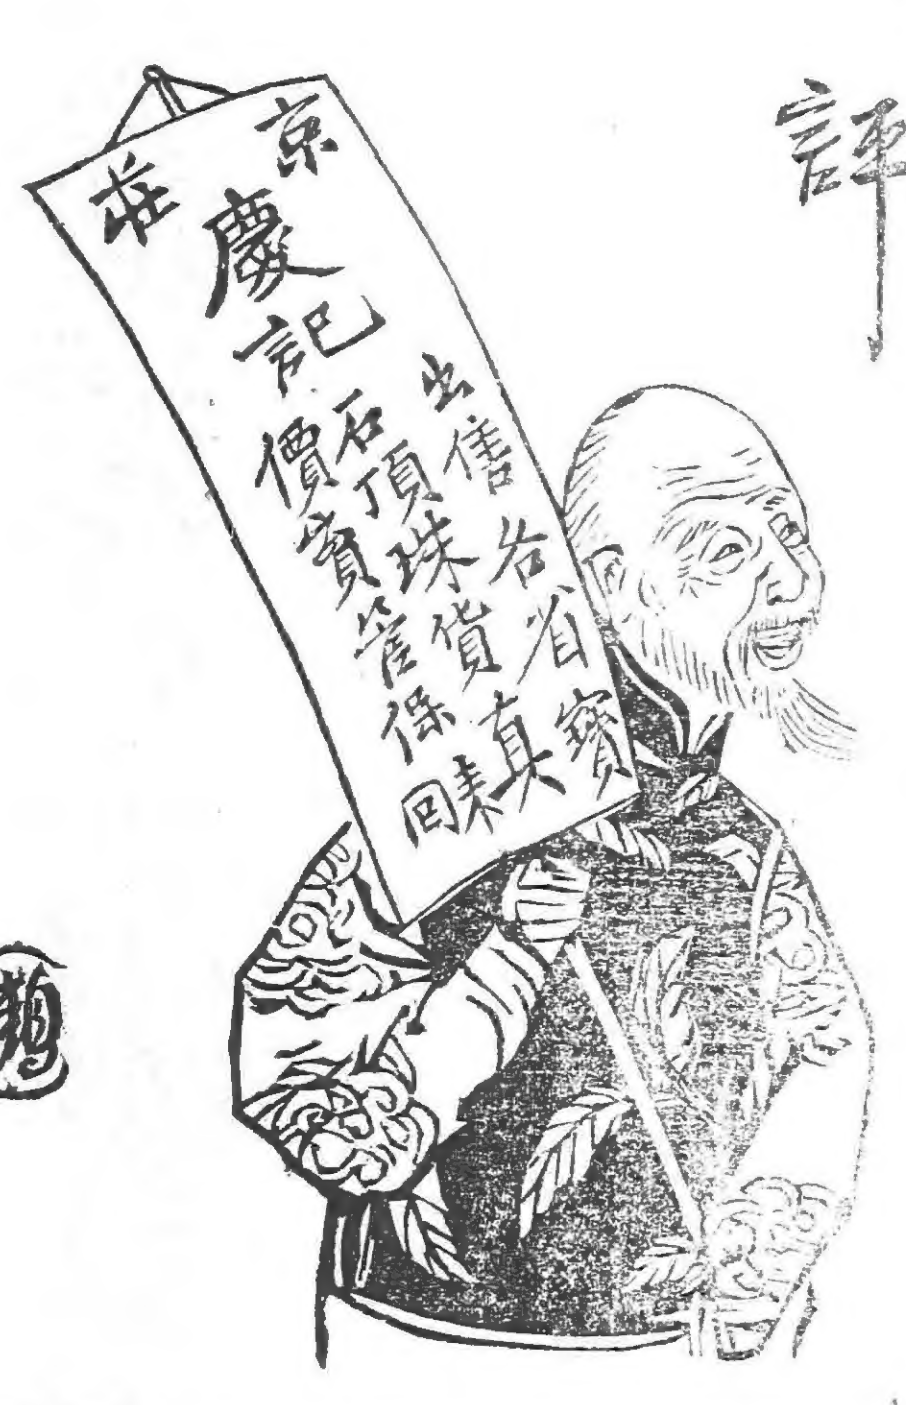 評
京莊
慶記
出售各省寶
石頂珠貨真
價實管保来回